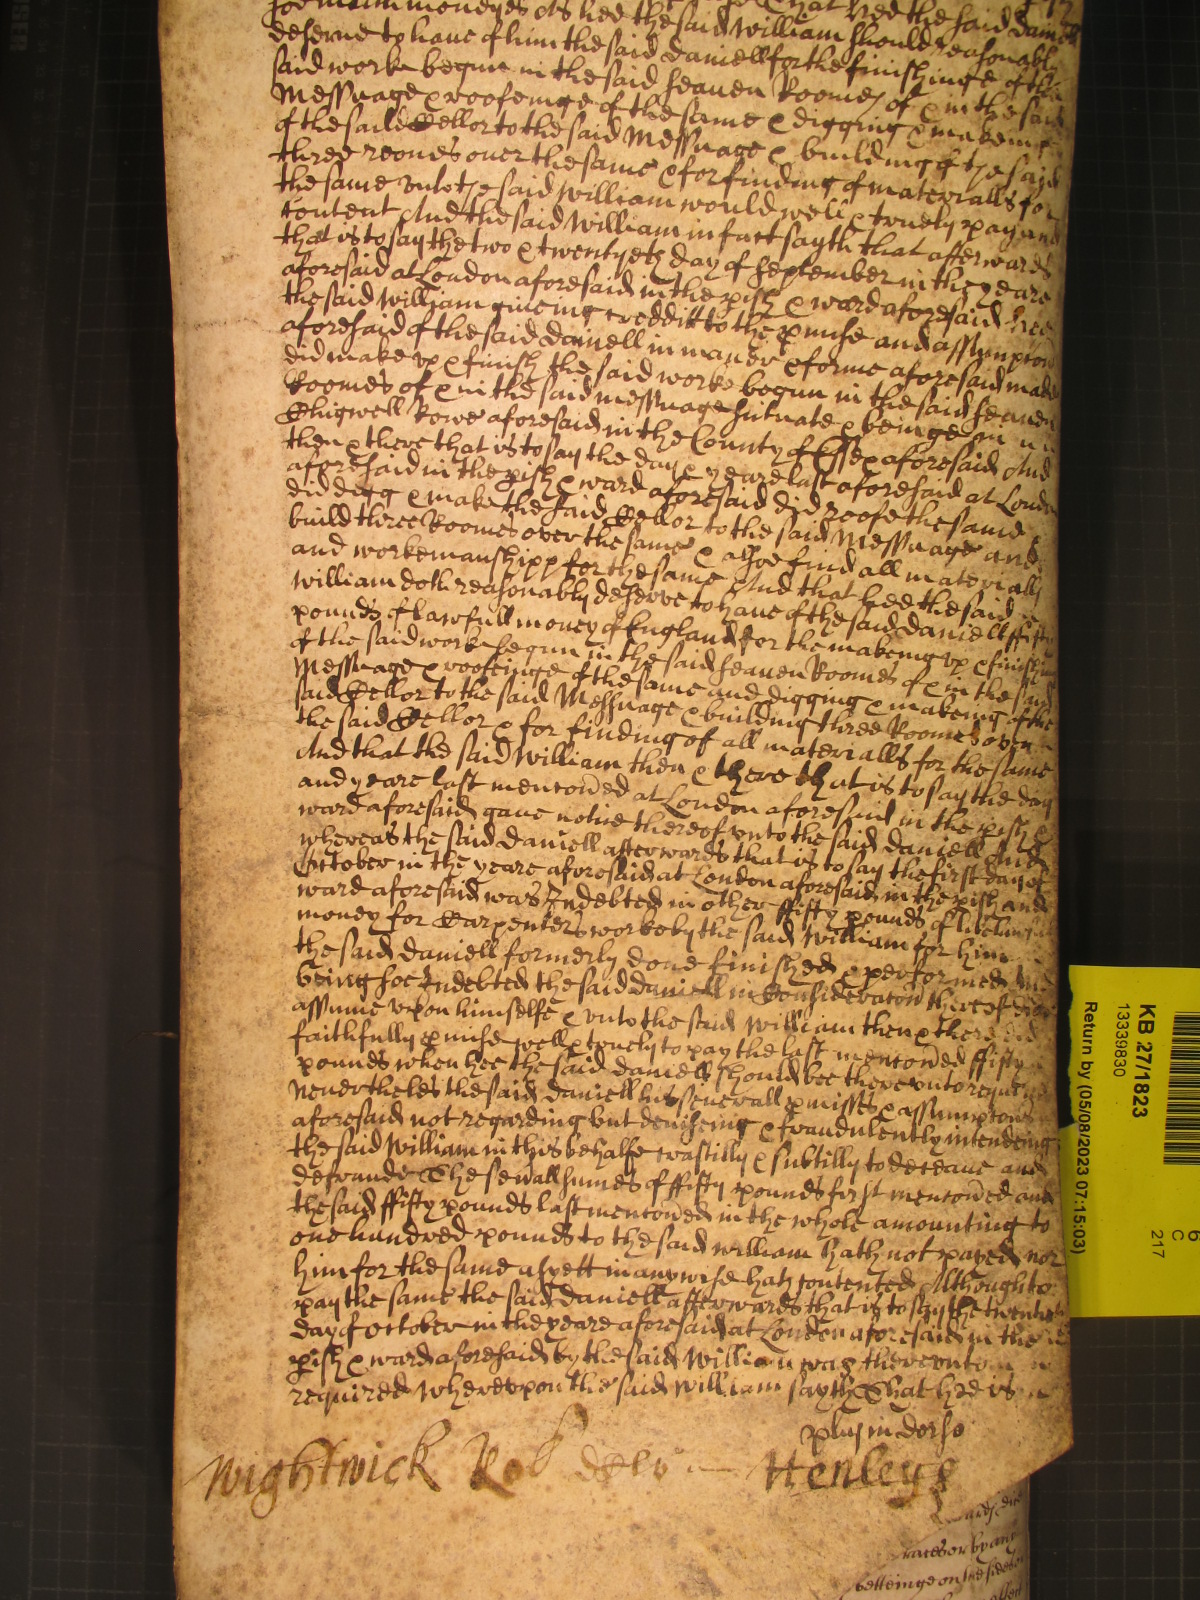 soe much moneyes As hee the said William should reasonably
deserve to have of him the said Daniell for the finishinge of the
said worke begun in the said seaven Roomes of & in the said
Messuage & roofeinge of the same & digging & makeing
of the said Cellor to the said Messuage & building of the said
three roomes over the same & for finding of materialls for
the same unto the said William would well & truely pay and
content And the said William in fact sayth that afterwards
that is to say the two & twentyeth day of September in the yeare
aforesaid at London aforesaid in the pish & ward aforesaid hee
the said William giveing credditt to the pmise and assumpcon
aforesaid of the said Daniell in maner & forme aforesaid made
did make up & finish the said worke begun in the said seaven
Roomes of & in the said messuage scituate & beinge in
Chigwell Rowe aforesaid in the County of Essex aforesaid And
then & there that is to say the day & yeare last aforesaid at London
aforesaid in the pish & ward aforesaid did roofe the same
did digg & make the said Cellor to the said Messuage and
build three Roomes over the same & alsoe find all materialls
and workemanshipp for the same And that hee the said
William doth reasonably deserve to have of the said Daniell ffifty
pounds of lawfull money of England for the makeing up & finishing
of the said worke begun in the said seaven Roomes of & in the said
Messuage & roofeinge of the same and digging & makeing of the
said Cellor to the said Messuage & building three Roomes over
the said Cellor & for finding of all materialls for the same
And that the said William then & there that is to say the day
and yeare last menconed at London aforesaid in the pish &
ward aforesaid gave notice thereof unto the said Daniell And
whereas the said Daniell afterwards that is to say the first day of
October in the yeare aforesaid at London aforesaid in the pish and
ward aforesaid was Indebted in other ffifty pounds of like
money for Carpenters worke by the said William for him
the said Daniell formerly done finished & performed And
being soe Indebted the said Daniell in Consideracon thereof did
assume upon himselfe & unto the said William then & there did
faithfully pmise well & truely to pay the last menconed ffifty
pounds when hee the said Daniell should bee thereunto
Nevertheles the said Daniell his severall pmisses & assumpcons
aforesaid not regarding but deviseing & fraudulently intendeing
the said William in this behalfe craftilly & subtilly to deceave and
defraude The sevall sumes of ffifty pounds first menconed and
the said ffifty pounds last menconed in the whole amounting to
one hundred pounds to the said William hath not payed nor
him for the same as yett in any wise hath contented Although to
pay the same the said Daniell afterwards that is to say the twentieth
day of October in the yeare aforesaid at London aforesaid in the
pish & ward aforesaid by the said William was thereunto
required Whereupon the said William sayth That hee is
plus in dorso
Wightwick Rob Henleye
races or by any
belleinge on the sides
KB 27/1823
13339830
Return by (05/08/2023 07:15:03)
C
217